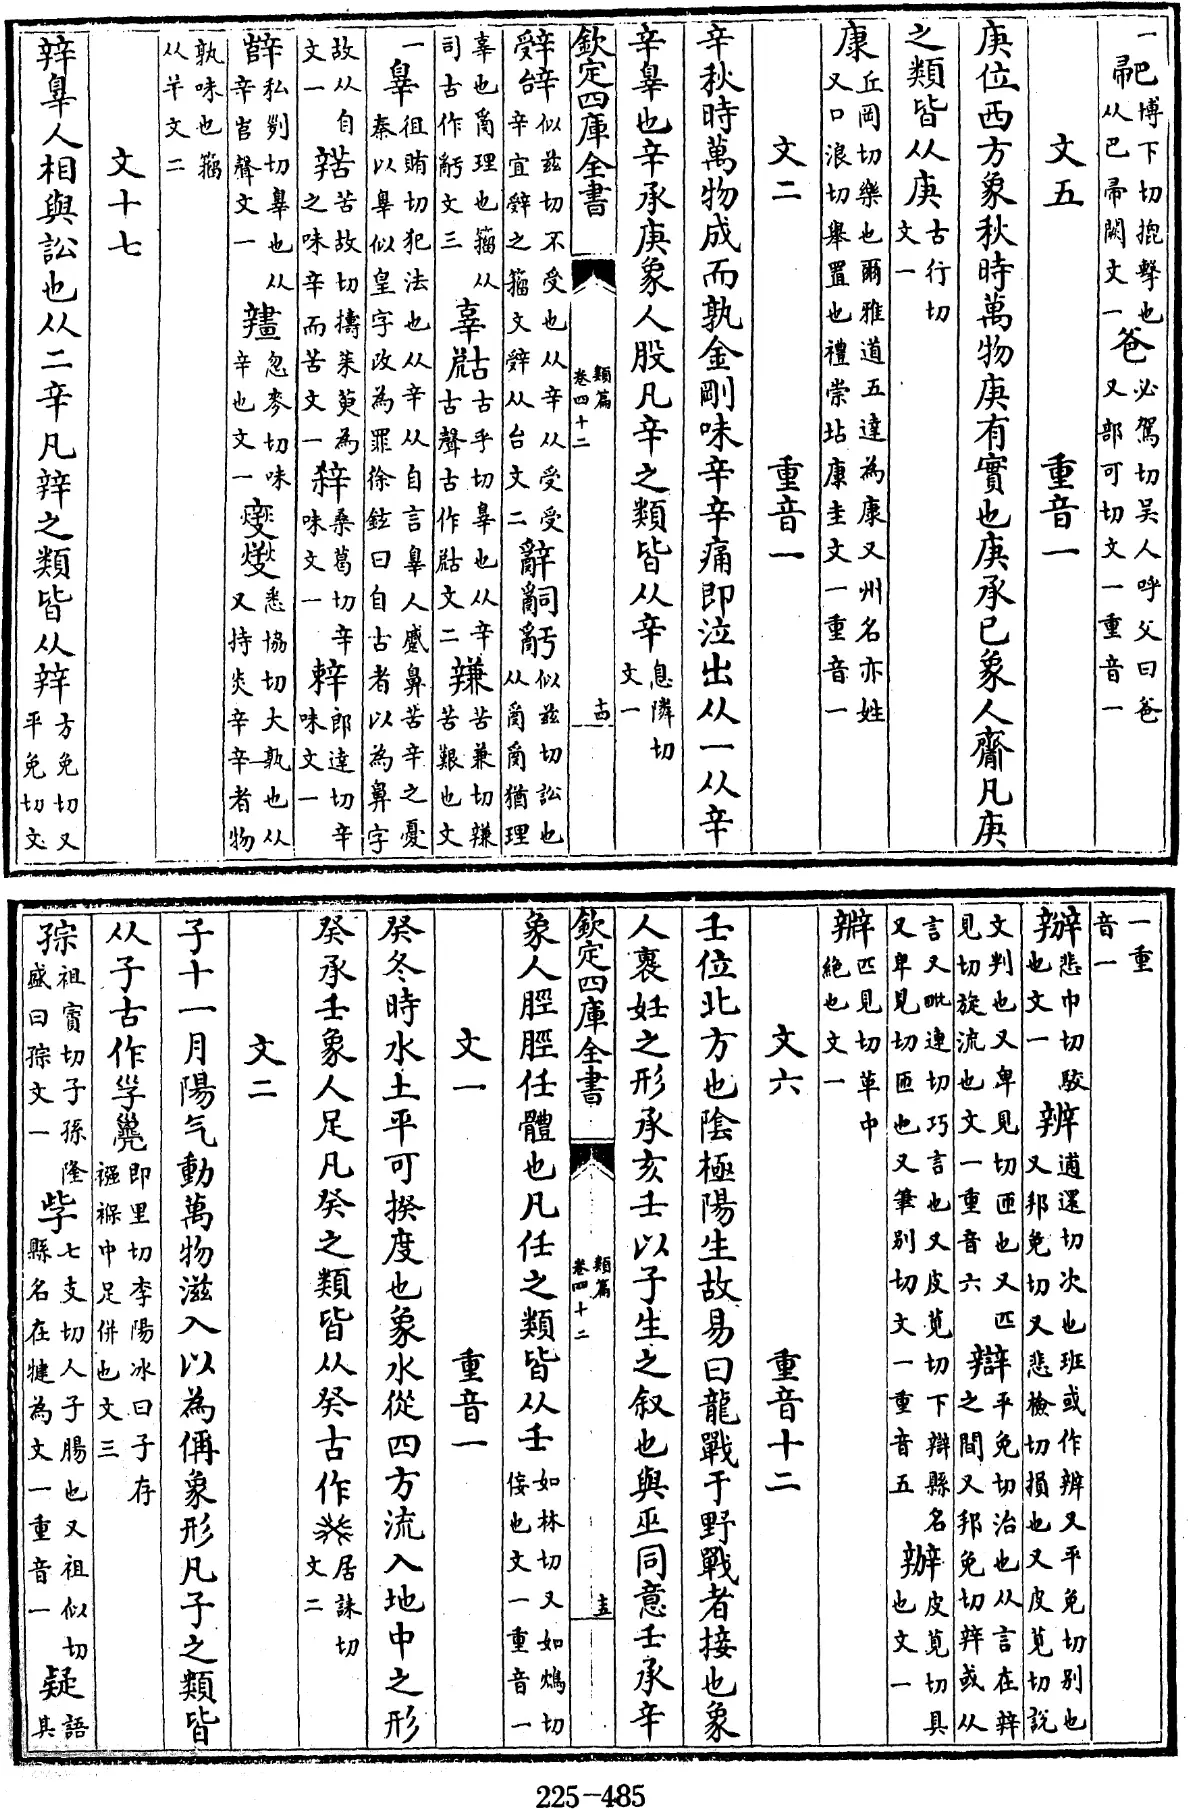 一博下切搹擊也从巴帚闕文一爸必駕切吳人呼父曰爸又部可切文一重音一
文五　重音一
庚位西方象秋時萬物庚有實也庚承已象人齌凡庚
之類皆从庚古行切文一
康丘岡切樂也爾雅道五達為康又州名亦姓又口浪切舉置也禮崇坫康圭文一重音一
文二　重音一
辛秋時萬物成而孰金剛味辛辛痛即泣出从一从辛
辛辠也辛承庚象人股凡辛之類皆从辛息隣切文一
欽定四庫全書　類篇卷四十二　古
辤辝似茲切不受也从辛从受受辛宜辤之籀文辤从台文二辭嗣𤔲似茲切訟也从𤔔𤔔猶理
辜也𤔔理也籀从司古作𤔲文三辜古乎切辠也从辛古聲古作文二𨐩苦兼切𨐩苦艱也文
一辠徂賄切犯法也从辛从自言辠人蹙鼻苦辛之憂秦以辠似皇字改為罪徐鉉曰自古者以為鼻字
故从自文一苦故切擣茱萸為之味辛而苦文一桑葛切辛味文一辢郎達切辛味文一
辥私列切辠也从辛𡴎聲文一忽麥切味辛也文一悉協切大孰也从又持炎辛辛者物
孰味也籀从羊文二
文十七
辡辠人相與訟也从二辛凡辡之類皆从辡方免切又平免切文
一重音一
辬悲巾切駁也文一辨逋還切次也班或作辨又平免切別也又邦免切又悲檢切損也又皮莧切說
文判也又卑見切匝也又匹見切旋流也文一重音六辯平免切治也从言在辡之間又邦免切辡或从
言又毗連切巧言也又皮莧切下辯縣名又卑見切匝也又筆別切文一重音五辦皮莧切具也文一
匹見切革中絶也文一
文六　重音十二
壬位北方也陰極陽生故易曰龍戰于野戰者接也象
人褢妊之形承亥壬以子生之叙也與巫同意壬承辛
欽定四庫全書　類篇卷四十二　圭
象人脛脛任體也凡任之類皆从壬如林切又如鴆切侫也文一重音一
文一　重音一
癸冬時水土平可揆度也象水從四方流入地中之形
癸承壬象人足凡癸之類皆从癸古作居誄切文二
文二
子十一月陽气動萬物滋入以為偁象形凡子之類皆
从子古作即里切李陽冰曰子存襁褓中足併也文三
孮祖賨切子孫隆盛曰孮文一七支切人子腸也又祖似切縣名在犍為文一重音一疑語其
225-485